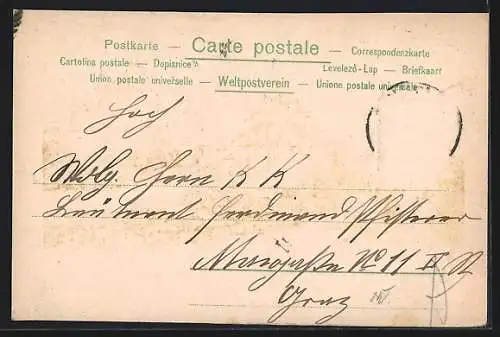 Postkarte — Carte postale — Correspondenzkarte
Cartolina postale — Dopisnice Levelező-Lap — Briefkaart
Union postale universelle — Weltpostverein — Unione postale universale
Hoch
Wolg. Herrn K K
Leutnant Ferdinand Pfisterer
No 11 II St
Graz